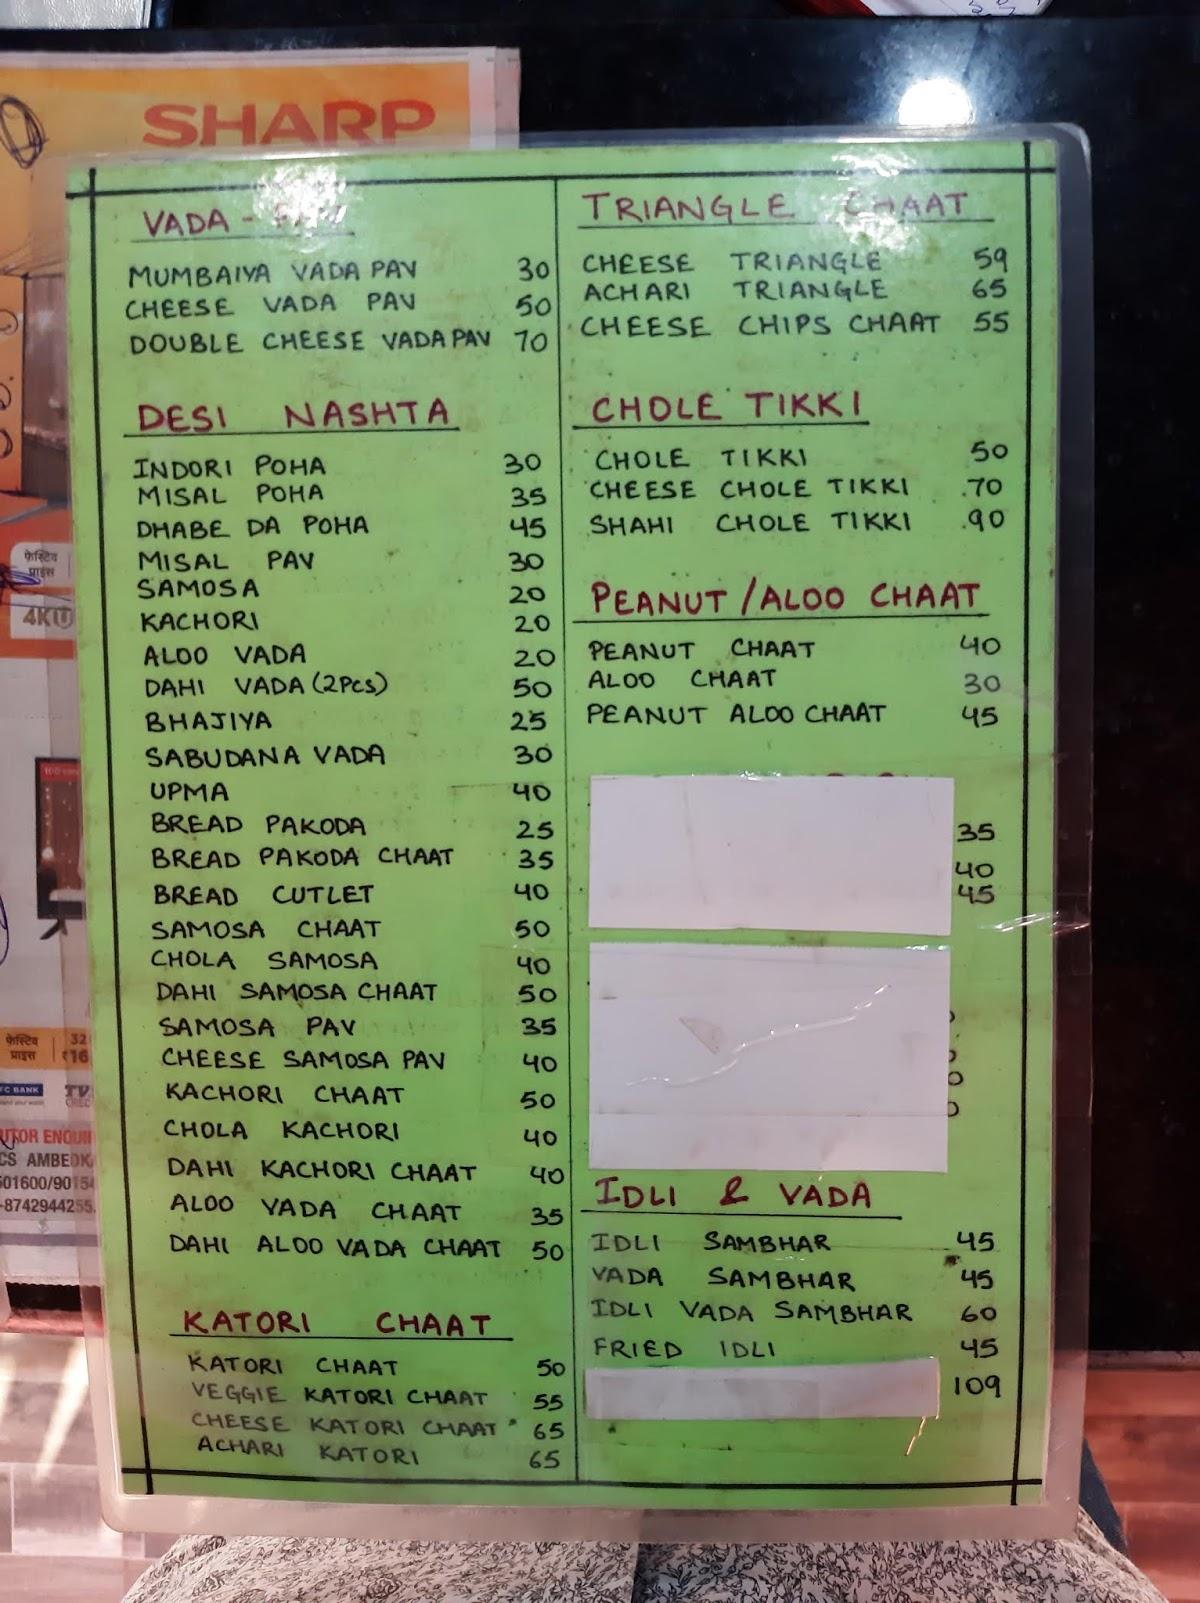 SHARP
VADA - PAV
MUMBAIYA VADA PAV 30
CHEESE VADA PAV 50
DOUBLE CHEESE VADA PAV 70
DESI NASHTA
INDORI POHA 30
MISAL POHA 35
DHABE DA POHA 45
MISAL PAV 30
SAMOSA 20
KACHORI 20
ALOO VADA 20
DAHI VADA (2Pcs) 50
BHAJIYA 25
SABUDANA VADA 30
UPMA 40
BREAD PAKODA 25
BREAD PAKODA CHAAT 35
BREAD CUTLET 40
SAMOSA CHAAT 50
CHOLA SAMOSA 40
DAHI SAMOSA CHAAT 50
SAMOSA PAV 35
CHEESE SAMOSA PAV 40
KACHORI CHAAT 50
CHOLA KACHORI 40
DAHI KACHORI CHAAT 40
ALOO VADA CHAAT 35
DAHI ALOO VADA CHAAT 50
KATORI CHAAT
KATORI CHAAT 50
VEGGIE KATORI CHAAT 55
CHEESE KATORI CHAAT 65
ACHARI KATORI 65
TRIANGLE CHAAT
CHEESE TRIANGLE 59
ACHARI TRIANGLE 65
CHEESE CHIPS CHAAT 55
CHOLE TIKKI
CHOLE TIKKI 50
CHEESE CHOLE TIKKI 70
SHAHI CHOLE TIKKI 90
PEANUT / ALOO CHAAT
PEANUT CHAAT 40
ALOO CHAAT 30
PEANUT ALOO CHAAT 45
35
40
45
IDLI & VADA
IDLI SAMBHAR 45
VADA SAMBHAR 45
IDLI VADA SAMBHAR 60
FRIED IDLI 45
109
फेस्टिव
प्राइस
4K
फेस्टिव
प्राइस
32
₹16
BANK
TV
CS AMBEDK
501600/90154
-8742944255